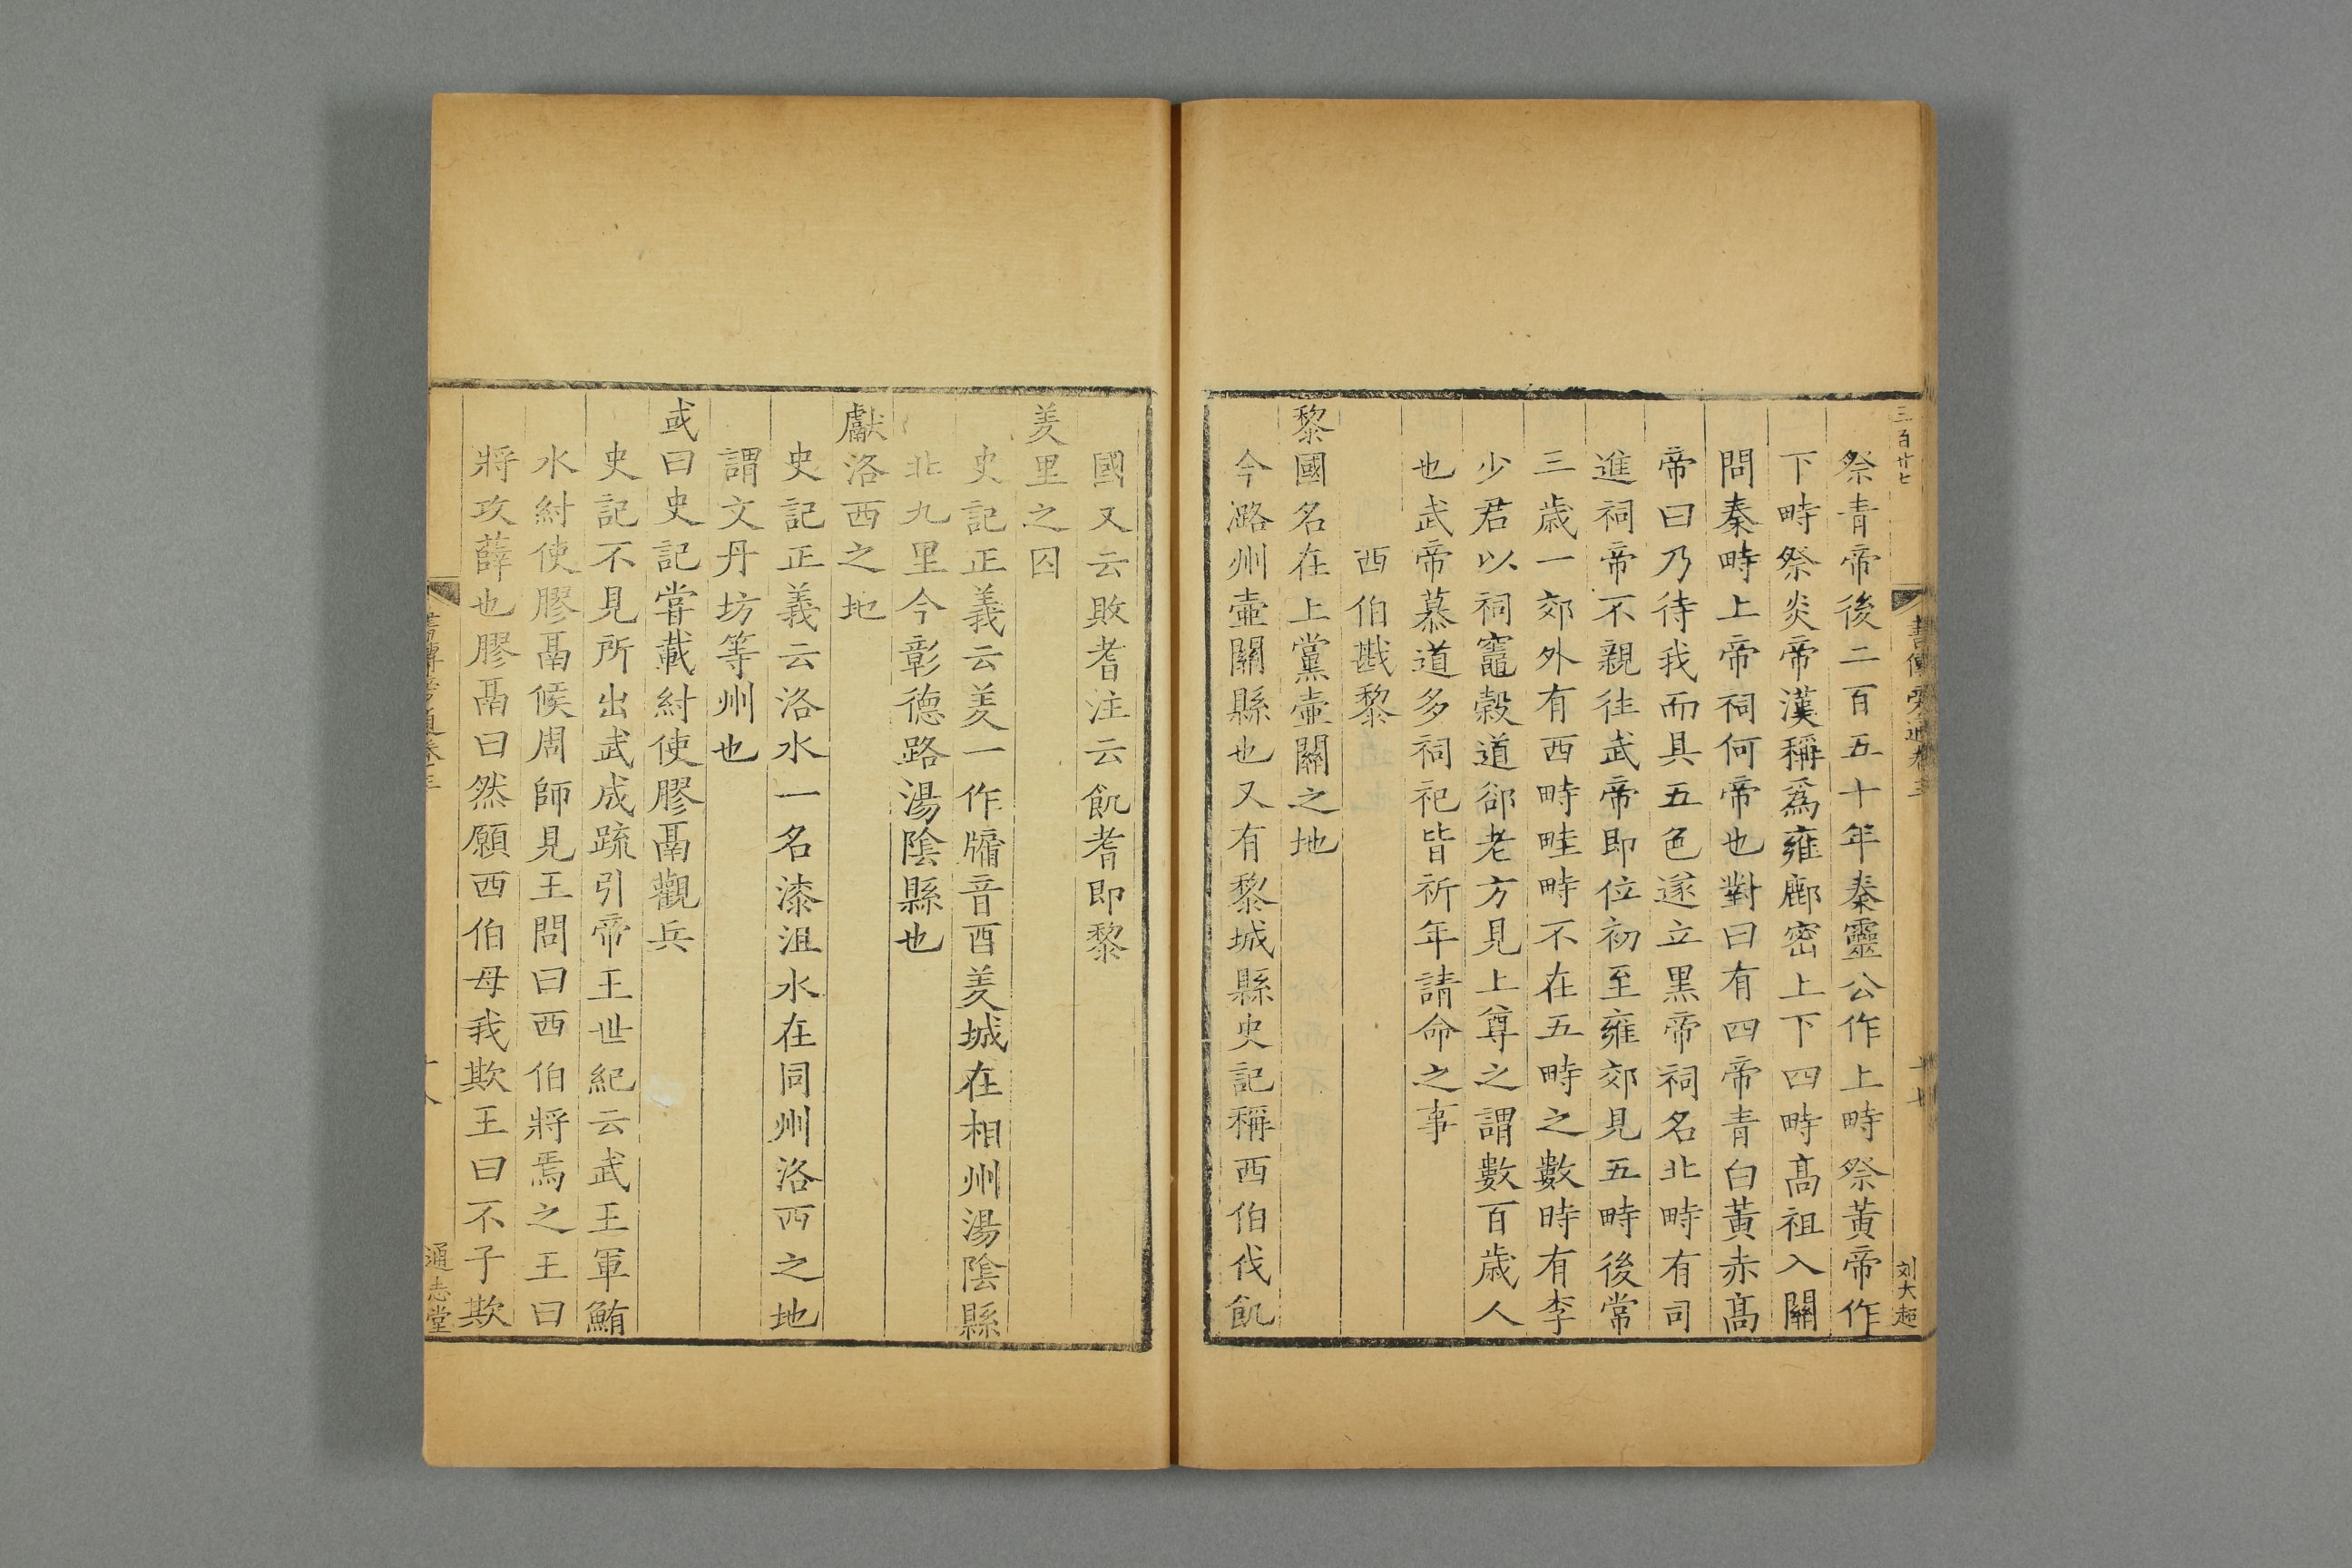 三百廿七
書傳旁通卷三
十七
刘大超
祭青帝後二百五十年秦靈公作上畤祭黃帝作
下畤祭炎帝漢稱爲雍鄜密上下四畤髙祖入關
問秦畤上帝祠何帝也對曰有四帝青白黃赤髙
帝曰乃待我而具五色遂立黑帝祠名北畤有司
進祠帝不親往武帝即位初至雍郊見五畤後常
三歳一郊外有西畤畦畤不在五畤之數時有李
少君以祠竈穀道郤老方見上尊之謂數百歳人
也武帝慕道多祠祀皆祈年請命之事
西伯戡黎
黎國名在上黨壷關之地
今潞州壷關縣也又有黎城縣史記稱西伯伐飢
國又云敗耆注云飢耆即黎
羑里之囚
史記正義云羑一作牖音酉羑城在相州湯隂縣
北九里今彰德路湯隂縣也
獻洛西之地
史記正義云洛水一名漆沮水在同州洛西之地
謂文丹坊等州也
或曰史記嘗載紂使膠鬲觀兵
史記不見所出武成疏引帝王世紀云武王軍鮪
水紂使膠鬲候周師見王問曰西伯將焉之王曰
將攻薛也膠鬲曰然願西伯母我欺王曰不子欺
書傳旁通卷三
十八
通志堂